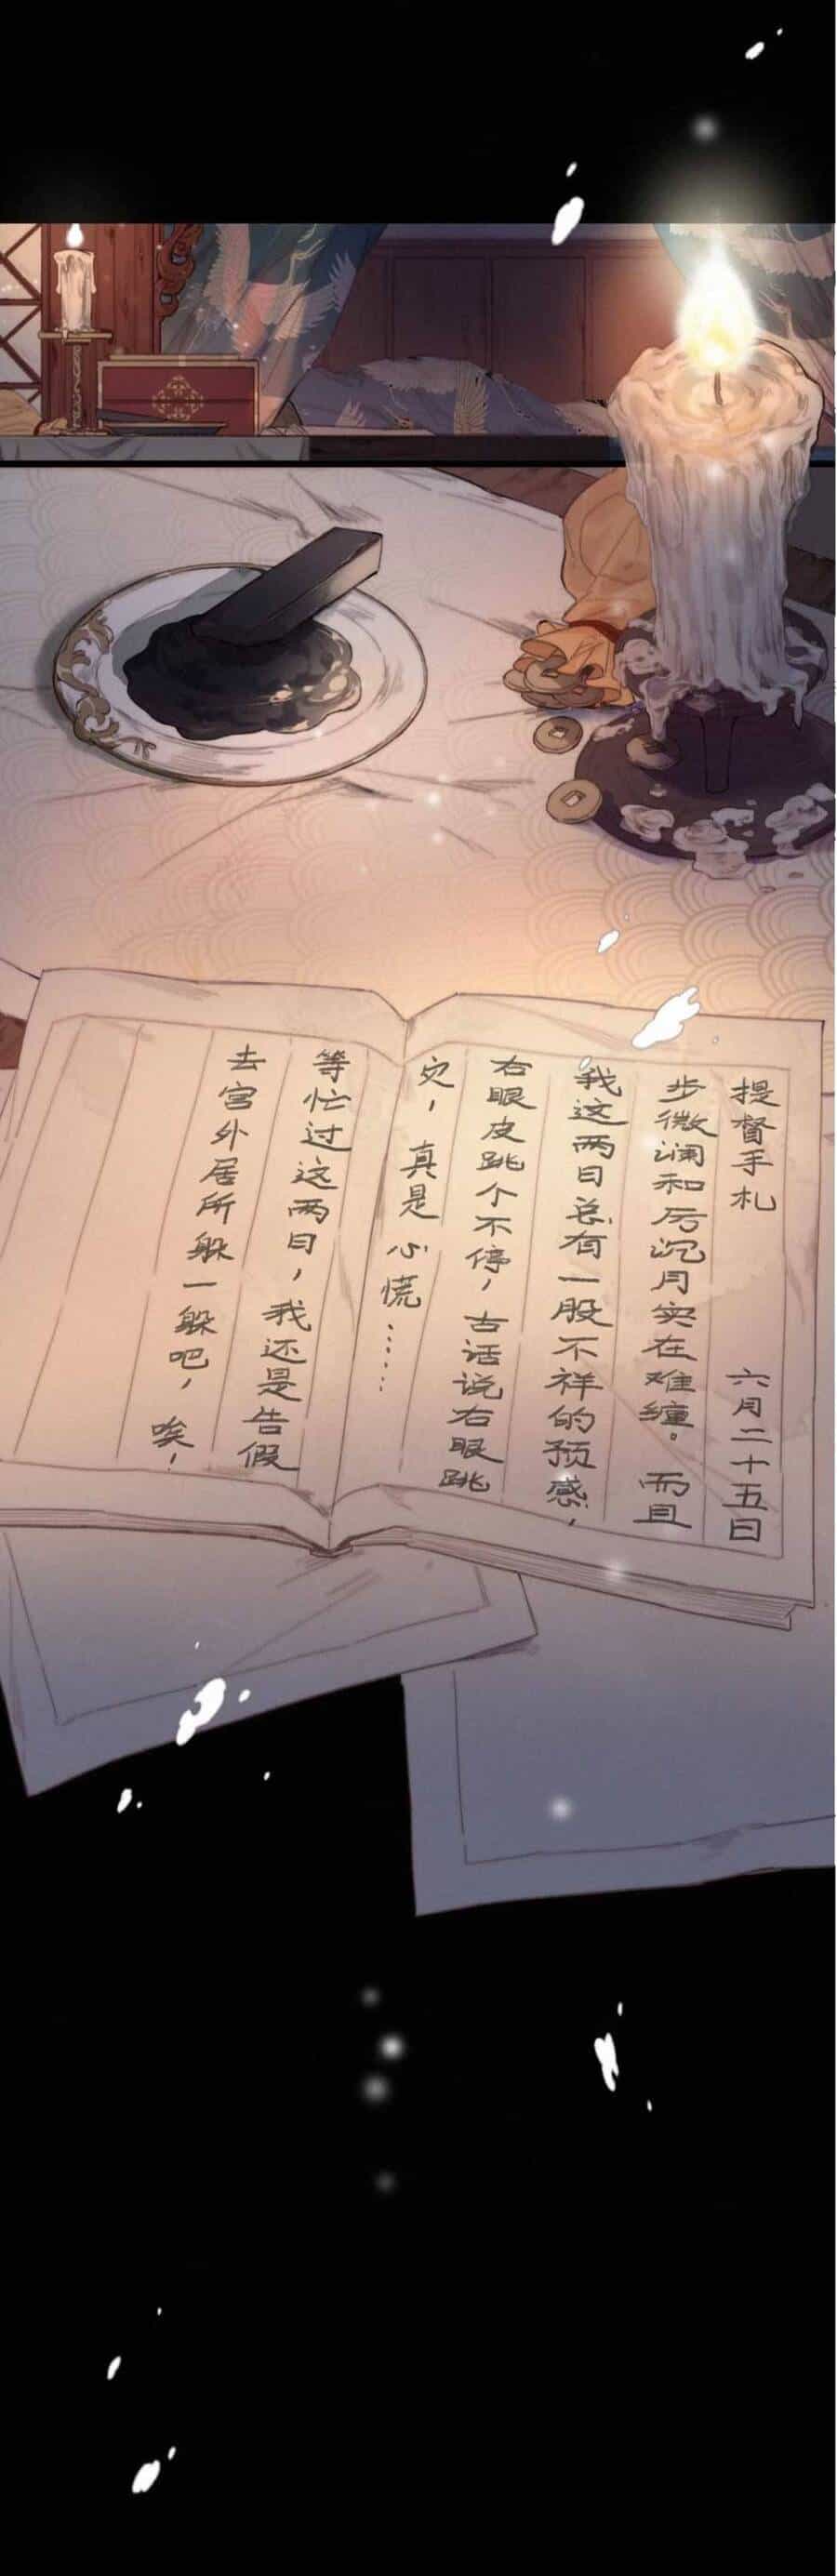 提督手札 六月二十五日
步微澜和厉沉月实在难缠。而且
我这两日总有一股不祥的预感，
右眼皮跳个不停，古话说右眼跳
灾，真是心慌……
等忙过这两日，我还是告假
去宫外居所躲一躲吧，唉，